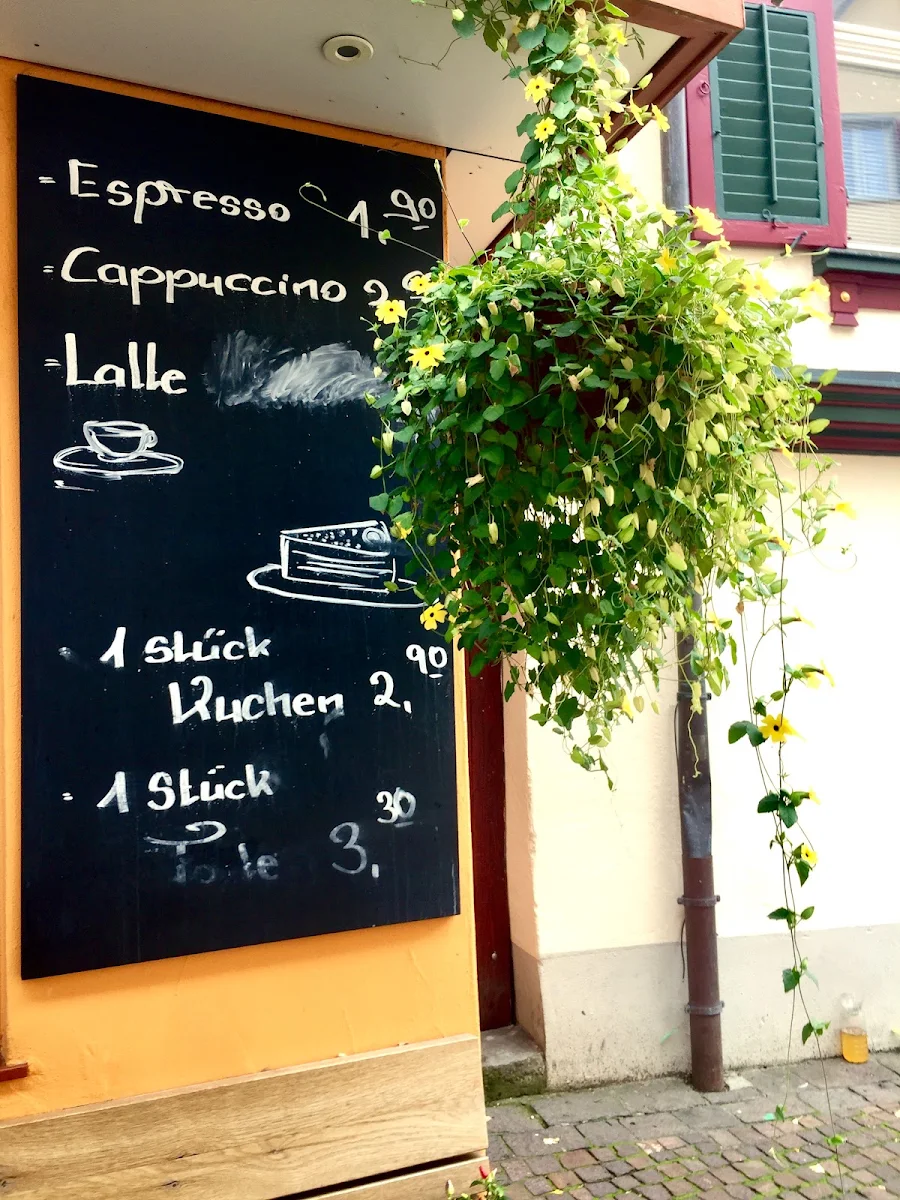 = Espresso 1,90
= Cappuccino 2
= Latte
1 Stück
Kuchen 2,90
= 1 Stück
Torte 3,30